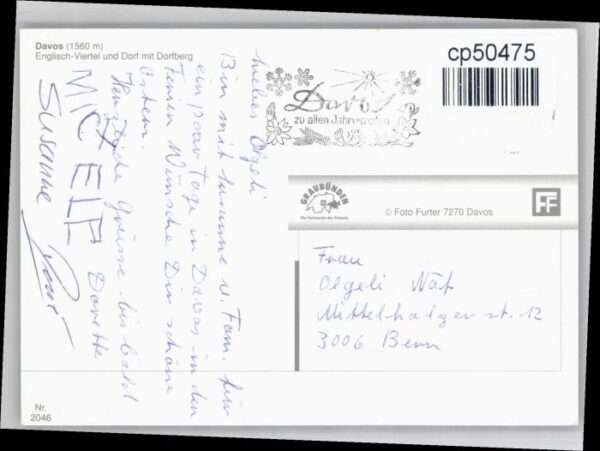 Davos (1560 m)
Englisch-Viertel und Dorf mit Dorfberg
cp50475
Davos
zu allen Jahreszeiten
GRAUBÜNDEN
Die Ferienecke der Schweiz
© Foto Furter 7270 Davos
FF
Liebes Olgeli
Bin mit Susanne u. Fam. für
ein paar Tage in Davos in den
Ferien. Wünsche Dir schöne
Ostern.
Herzliche Grüsse - bis bald
Dorette
Susanne
Frau
Olgeli Näf
Mittelholzerst. 12
3006 Bern
Nr.
2046